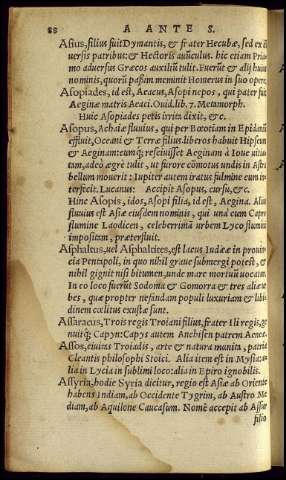 88 A ANTE S.
Asius, filius fuit Dymantis, & frater Hecubæ, sed ex di
uersis patribus: & Hectoris auũculus. hic etiam Priamo
aduersus Græcos auxiliũ tulit. Fuerũt & alij huius
nominis, quorũ passim meminit Homerus in suo opere.
Asopiades, id est, Aeacus, Asopi nepos, qui pater fuit
Aeginæ matris Aeaci. Ouid. lib. 7. Metamorph.
Huic Asopiades petis irrita dixit, &c.
Asopus, Achaiæ fluuius, qui per Bœotiam in
effluit, Oceani & Terræ filius liberos habuit Hipseum
& Aeginam: eumq; resciuisset Aeginam à Ioue uitiatam,
adeò ægrè tulit, ut furore cōmotus undis in Astra
bellum mouerit: Iupiter autem iratus fulmine eum interfecit.
Lucanus: Accipit Asopus, cursu, &c.
Hinc Asopis, idos, Asopi filia, id est, Aegina. Alius
fluuius est Asiæ eiusdem nominis, qui una cum Capro
flumine Laodicen, celeberrimã urbem Lyco flumini
impositam, præterfluit.
Asphaltus, uel Asphaltites, est lacus Iudææ in prouin
cia Pentapoli, in quo nihil graue submergi potest, &
nihil gignit nisi bitumen, unde mare mortuũ uocant.
In eo loco fuerũt Sodoma & Gomorra & tres aliæ urbes,
quæ propter nefandam populi luxuriam & libidinem
cœlitus exustæ sunt.
Assaracus, Trois regis Troiani filius, frater Ili regis, ge
nuitq; Capyn: Capys autem Anchisen patrem Aeneæ.
Assos, ciuitas Troiadis, arte & natura munita, patria
Cleantis philosophi Stoici. Alia item est in Mysia: alia
in Lycia in sublimi loco: alia in Epiro ignobilis.
Assyria, hodie Syria dicitur, regio est Asiæ ab Oriente
habens Indiam, ab Occidente Tygrim, ab Austro Me
diam, ab Aquilone Caucasum. Nomẽ accepit ab Assur
filio